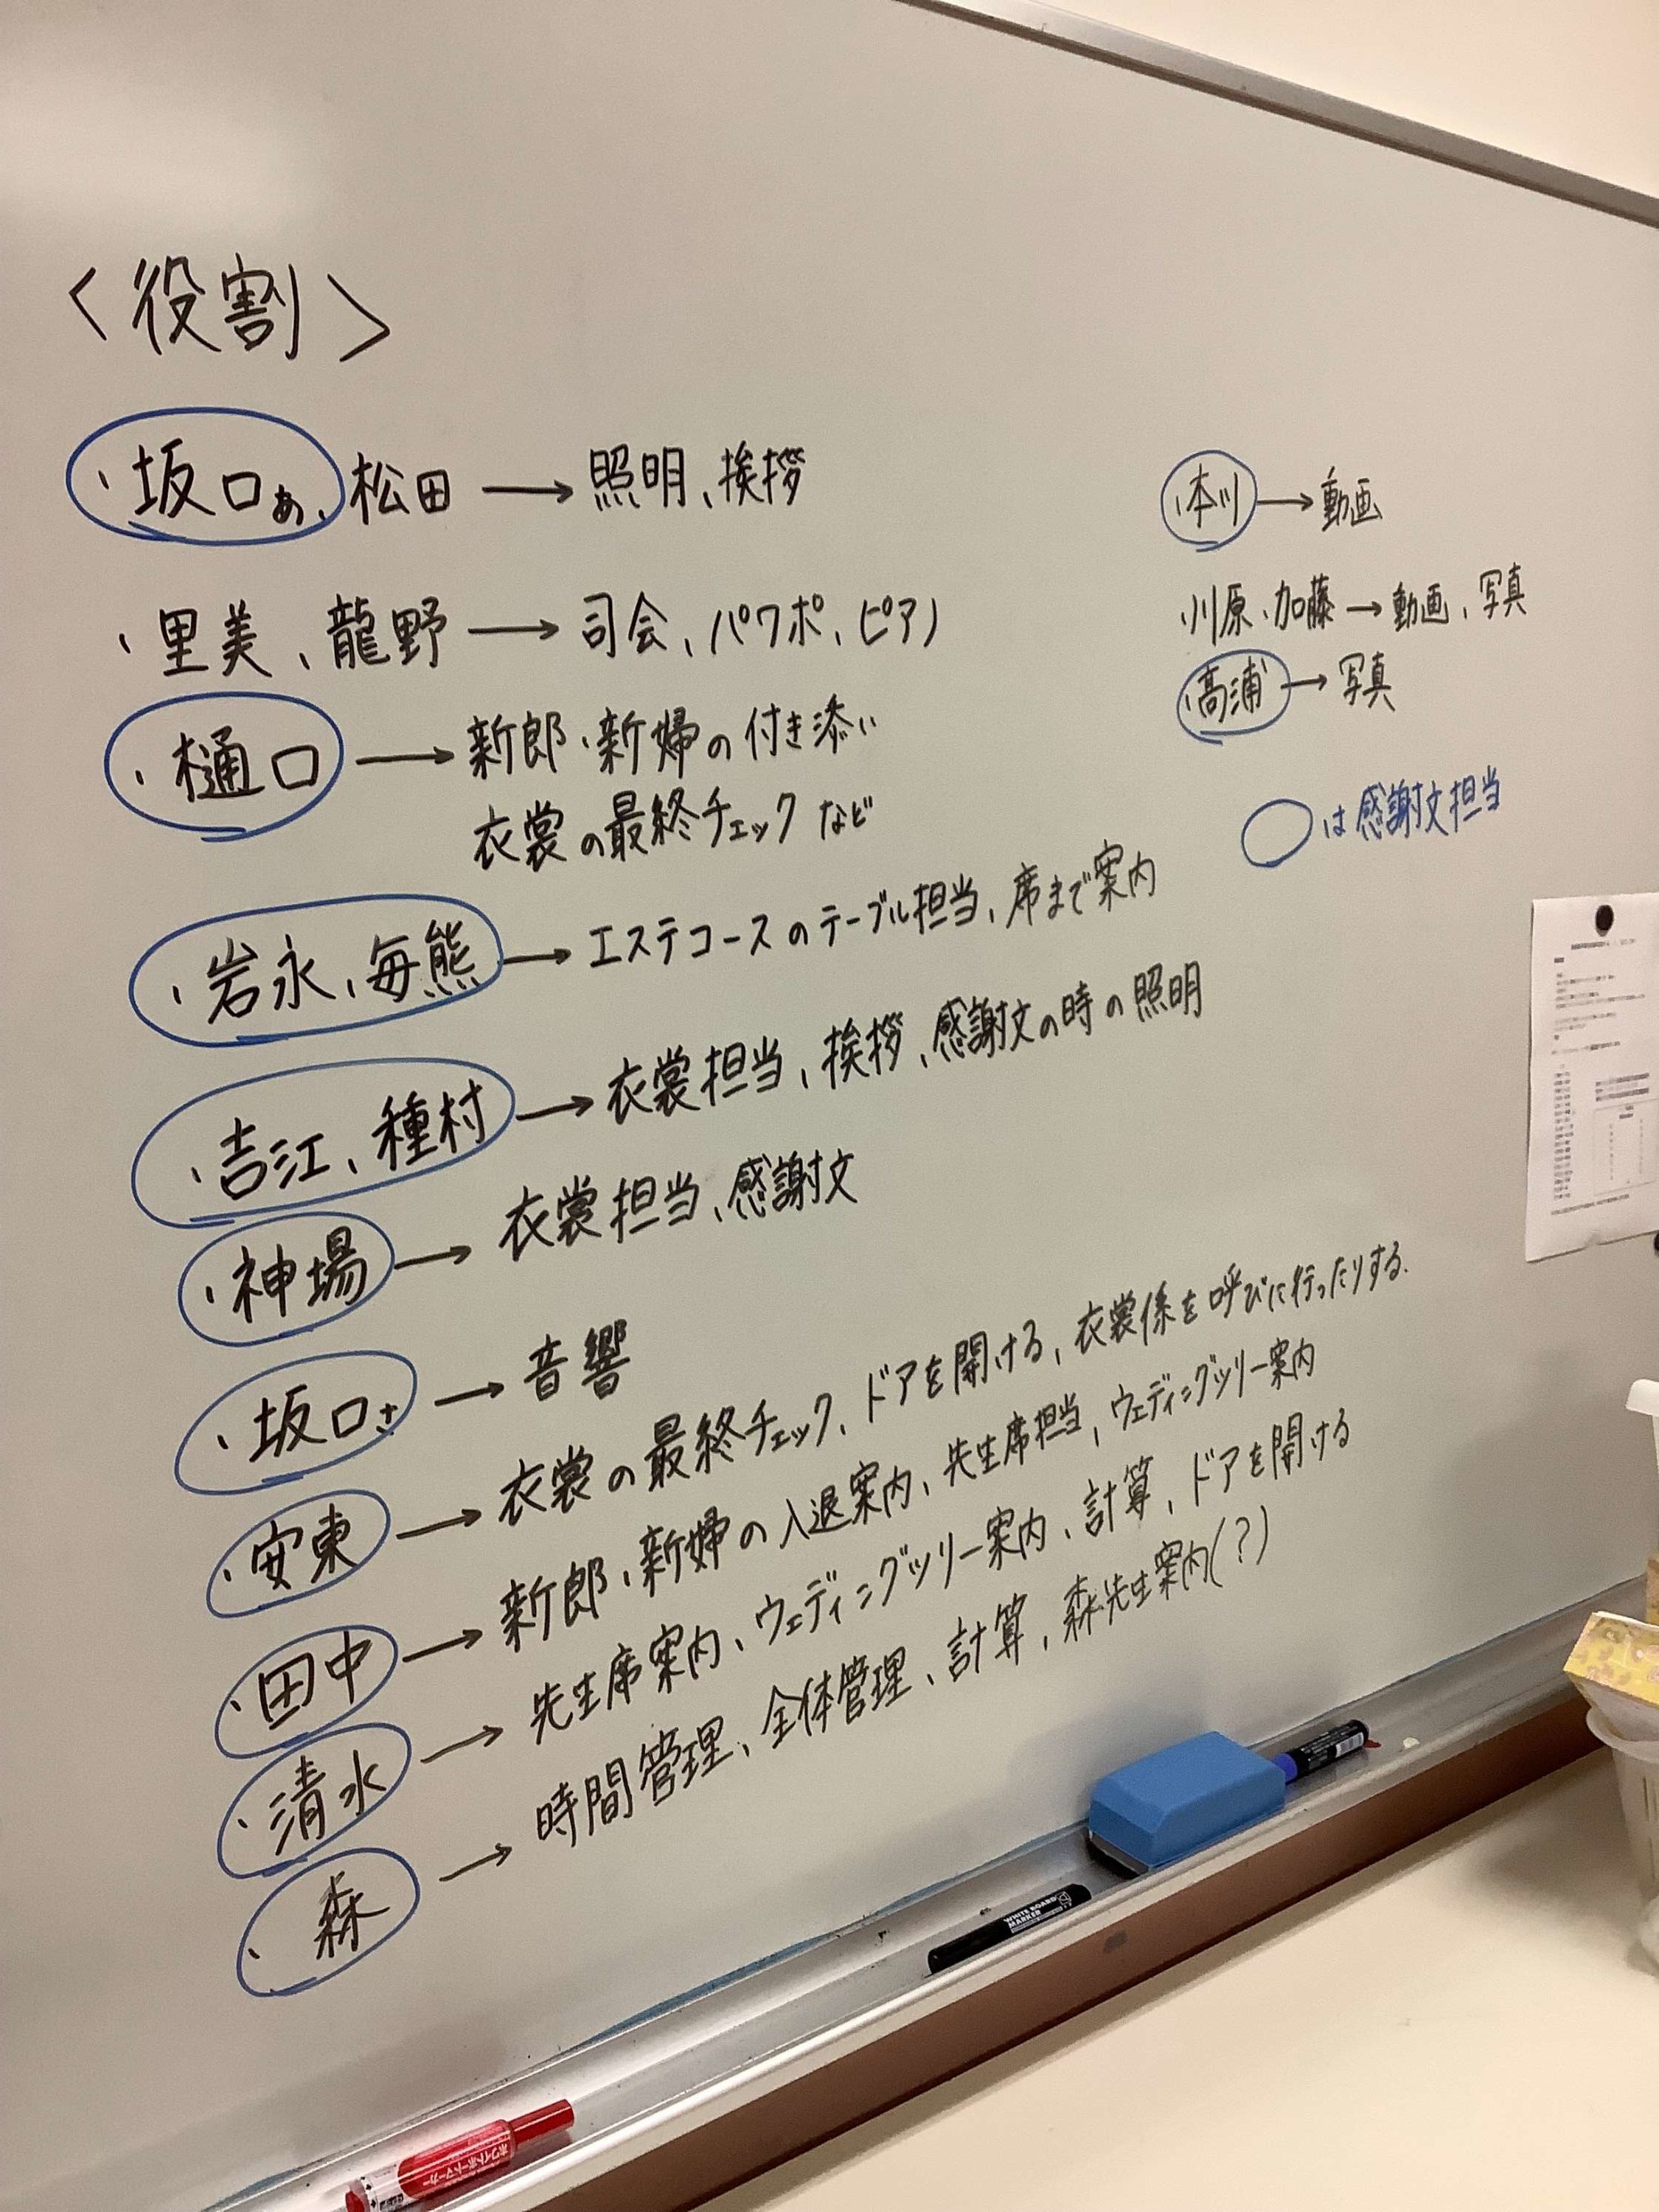 <役割>
・坂口あ、松田 → 照明、挨拶
・里美、龍野 → 司会、パワポ、ピアノ
・樋口 → 新郎・新婦の付き添い
衣裳の最終チェックなど
・岩永、毎熊 → エステコースのテーブル担当、席まで案内
・吉江、種村 → 衣裳担当、挨拶、感謝文の時の照明
・神場 → 衣裳担当、感謝文
・坂口さ → 音響
・安東 → 衣裳の最終チェック、ドアを開ける、衣裳係を呼びに行ったりする.
・田中 → 新郎・新婦の入退案内、先生席担当、ウェディングツリー案内
・清水 → 先生席案内、ウェディングツリー案内、計算、ドアを開ける
・森 → 時間管理、全体管理、計算、森先生案内(?)
・本川 → 動画
・川原、加藤 → 動画、写真
・高浦 → 写真
○は感謝文担当
WHITE BOARD
MARKER
ホワイトボードマーカー